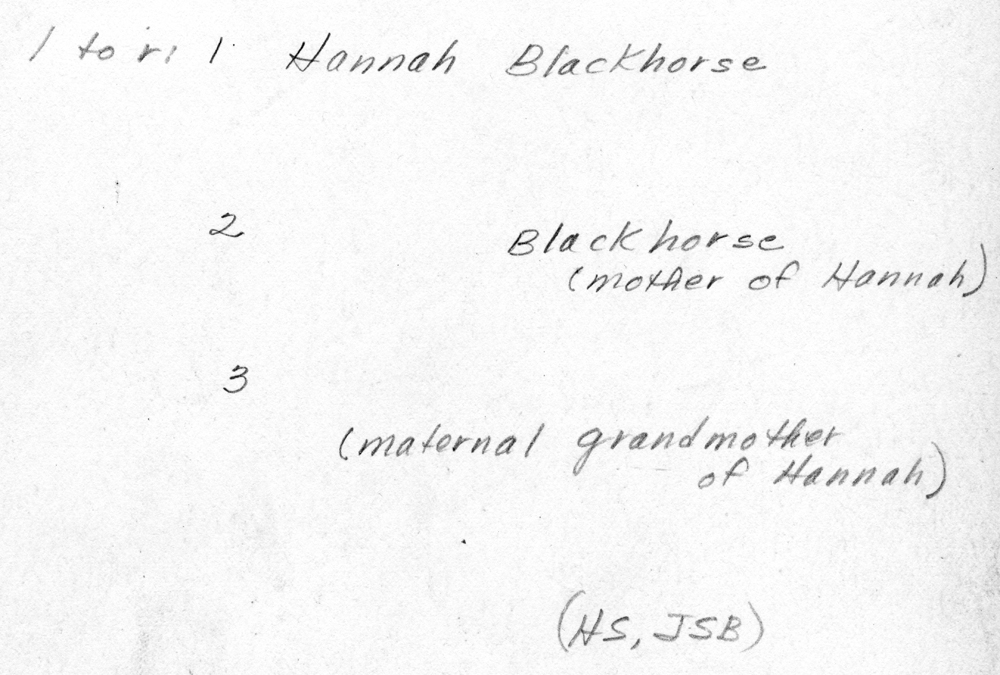 l to r: 1 Hannah Blackhorse
2 Blackhorse
(mother of Hannah)
3
(maternal grandmother
of Hannah)
(HS, JSB)